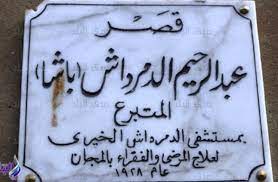 قصر
عبدالرحيم الدمرداش (باشا)
المتبرع
بمستشفى الدمرداش الخيرى
لعلاج المرضى والفقراء بالمجان
عام ١٩٢٨